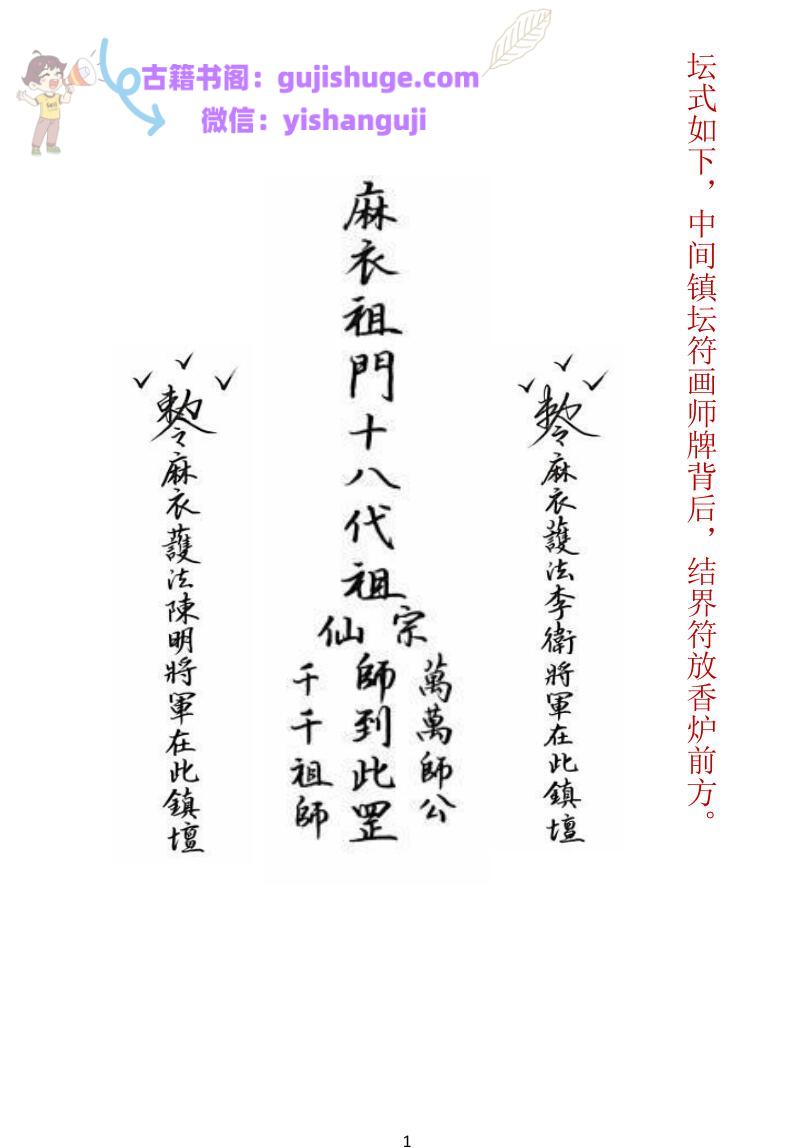 古籍书阁：gujishuge.com
微信：yishanguji
坛式如下，中间镇坛符画师牌背后，结界符放香炉前方。
敕令麻衣護法李衛將軍在此鎮壇
麻衣祖門十八代祖
宗
仙
萬萬師公
師到此罡
千千祖師
敕令麻衣護法陳明將軍在此鎮壇
1